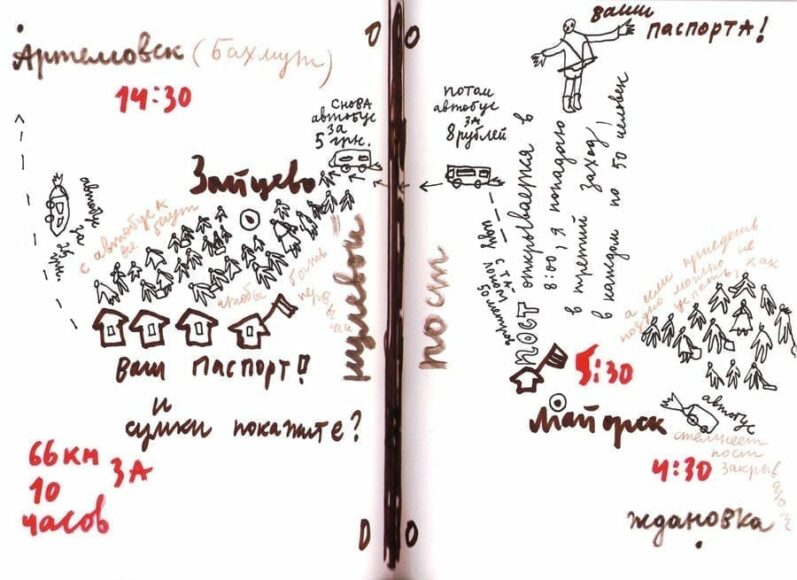 Артемовск (Бахмут)
14:30
Зайцево
снова
автобус
за
5 грн.
автобус
за
с автобуса
все бегут
чтобы быть
ваш паспорт!!
и
сумки покажите?
66 км
за
10
часов
нулевой
пост
потом
автобус
за
8 рублей
ваши
паспорта!
ПОСТ открывается в
8:00, я попадаю
в третий заход,
в каждом по 50 человек
50 метров
а если приедешь
поздно можно не
успеть
5:30
Майорск
автобус
стемнеет
пост
закрыв
4:30
ждановка